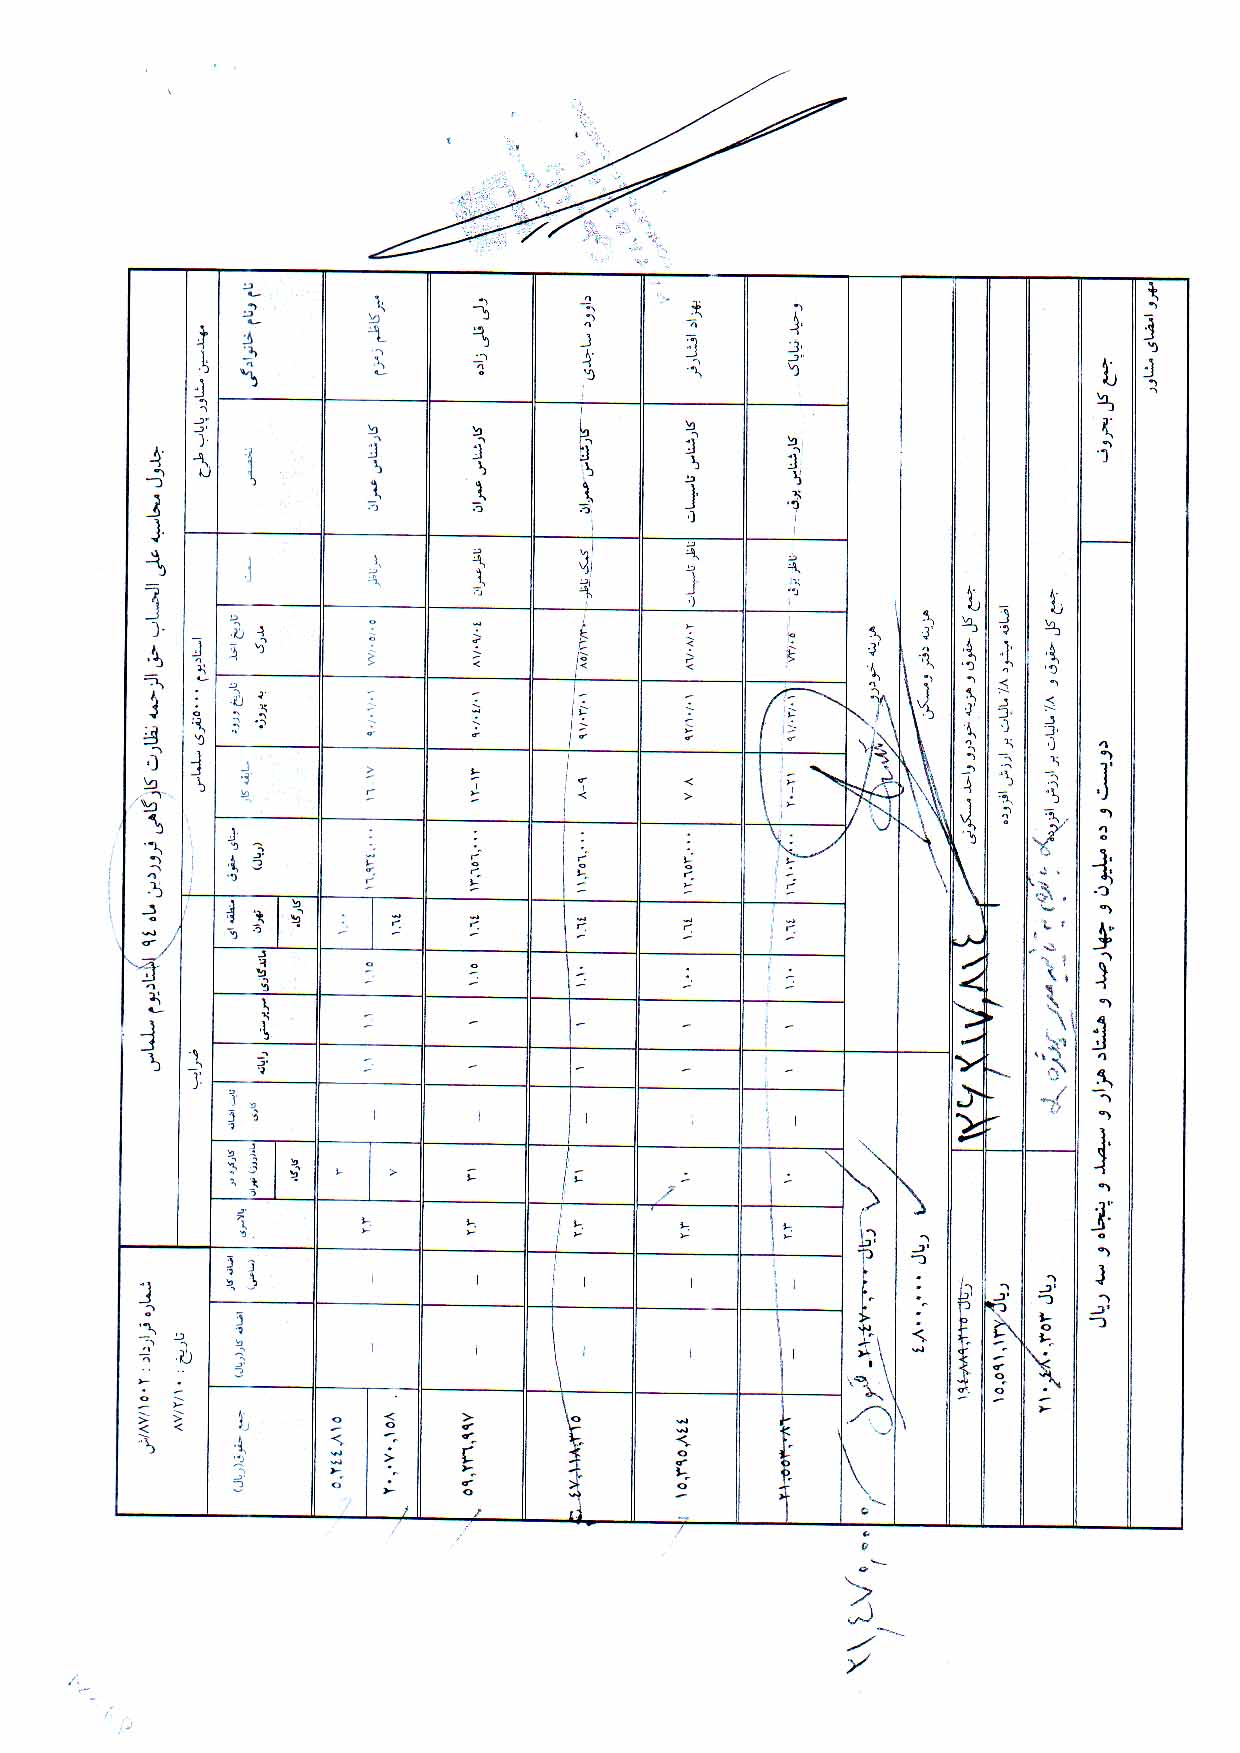 جدول محاسبه علی الحساب حق الزحمه نظارت کارگاهی فروردین ماه ۹۴ استادیوم سلماس
شماره قرارداد : ۸۷/۱۵۰۲/ش
تاریخ : ۸۷/۲/۱۰
مهندسین مشاور پایاب طرح
استادیوم ۵۰۰۰نفری سلماس
ضرایب
نام ونام خانوادگی
تخصص
سمت
تاریخ اخذ مدرک
تاریخ ورود به پروژه
سابقه کار
مبنای حقوق (ریال)
منطقه ای تهران کارگاه
ماندگاری
سرپرستی
رایانه
ثابت اضافه کاری
کارکرد در تهران کارگاه
بالاسری
اضافه کار (ساعتی)
اضافه کار (ریال)
جمع حقوق (ریال)
میر کاظم زمزم کارشناس عمران سرناظر ۷۷/۰۵/۰۵ ۹۰/۰۱/۰۱ ۱۶ ۱۷ ۱۶,۹۳۴,۰۰۰ ۱.۰۰ ۱.۱۵ ۱.۱ ۱.۱ — ۳ ۲.۳ — — ۵,۲۴٤,۸۱۵
۱.٦٤ ۷ ۲۰,۰۷۰,۱۵۸
ولی قلی زاده کارشناس عمران ناظر عمران ۸۱/۰۹/۰٤ ۹۰/۰٤/۰۱ ۱۲-۱۳ ۱۳,٦٥٦,۰۰۰ ۱.٦٤ ۱.۱۵ ۱ ۱ — ۳۱ ۲.۳ — — ۵۹,۲۳٦,۹۹۷
داوود ساجدی کارشناس عمران کمک ناظر ۹۱/۰۳/۰۱ ۸-۹ ۱۱,۳٥٦,۰۰۰ ۱.٦٤ ۱.۱۰ ۱ ۱ — ۳۱ ۲.۳ — — ٤۷,۱۱۸,۳۱۵
بهزاد افشارفر کارشناس تاسیسات ناظر تاسیسات ۸٦/۰۸/۰۲ ۹۲/۱۰/۰۱ ۷ ۸ ۱۲,٦٥۳,۰۰۰ ۱.٦٤ ۱.۰۰ ۱ ۱ — ۱۰ ۲.۳ — — ۱۵,۳۹۵,۸٤٤
وحید نیاپاک کارشناس برق ناظر برق ۷۳/۰۵ ۹۱/۰۳/۰۱ ۲۰-۲۱ ۱٦,۱۰۳,۰۰۰ ۱.٦٤ ۱.۱۰ ۱ ۱ — ۱۰ ۲.۳ — — ۲۱,۵۵۳,۰۸٦
هزینه خودرو ۲۱,٤۷۰,۰۰۰ ریال
۲۱,٤۷۰,۰۰۰
هزینه دفتر ومسکن ٤,۸۰۰,۰۰۰ ریال
جمع کل حقوق و هزینه خودرو واحد مسکونی ۱۹٤,۸۸۹,۲۱۵ ریال
۱۲۶,۲۱۷,۸۱۴
اضافه میشود ۸٪ مالیات بر ارزش افزوده ۱۵,۵۹۱,۱۳۷ ریال
جمع کل حقوق و ۸٪ مالیات بر ارزش افزوده ۲۱۰,٤۸۰,۳۵۳ ریال
جمع کل بحروف دویست و ده میلیون و چهارصد و هشتاد هزار و سیصد و پنجاه و سه ریال
مهر و امضای مشاور